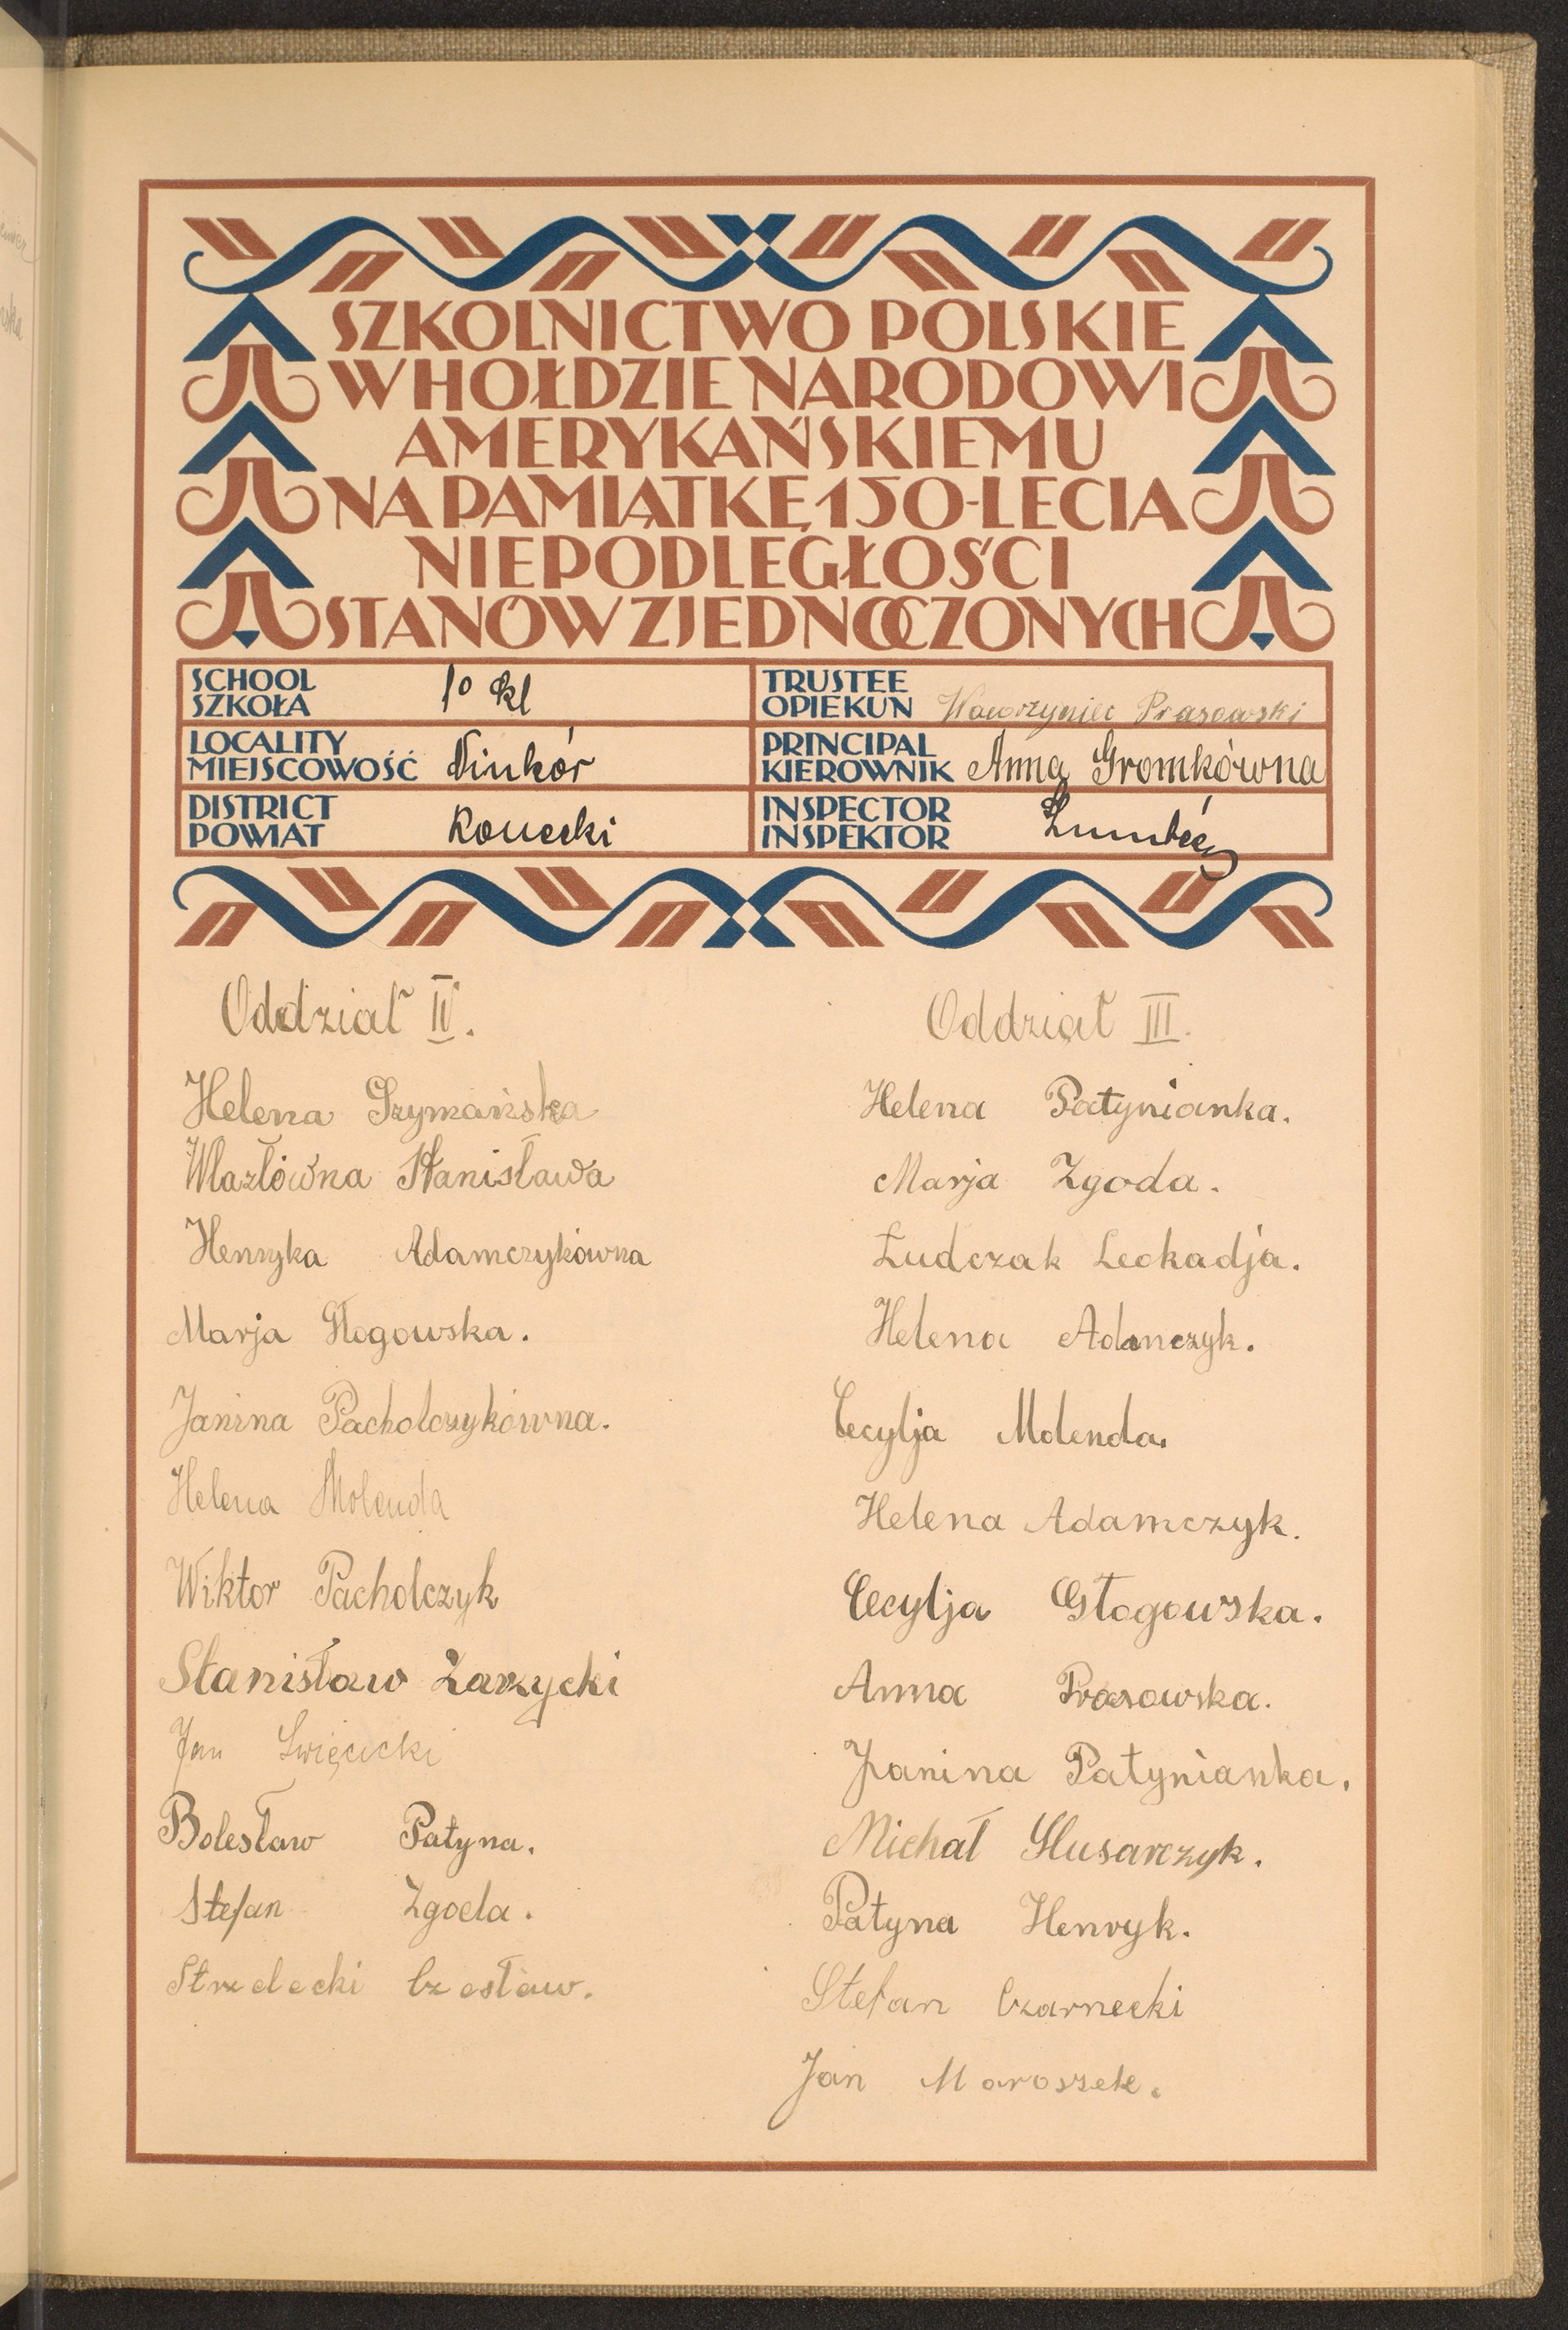 SZKOLNICTWO POLSKIE
W HOŁDZIE NARODOWI
AMERYKAŃSKIEMU
NA PAMIĄTKĘ 150-LECIA
NIEPODLEGŁOŚCI
STANÓW ZJEDNOCZONYCH
SCHOOL
SZKOŁA 1º kl
TRUSTEE
OPIEKUN Wawrzyniec Prasowski
LOCALITY
MIEJSCOWOŚĆ Ninków
PRINCIPAL
KIEROWNIK Anna Gromkówna
DISTRICT
POWIAT Konecki
INSPECTOR
INSPEKTOR
Oddział IV.
Helena Szymańska
Wlazłówna Stanisława
Henryka Adamczykówna
Marja Głogowska.
Janina Pacholczykówna.
Helena Molenda
Wiktor Pacholczyk
Stanisław Zarzycki
Jan Święcicki
Bolesław Patyna.
Stefan Zgoda.
Strzelecki Czesław.
Oddział III.
Helena Patynianka.
Marja Zgoda.
Łudczak Leokadja.
Helena Adamczyk.
Cecylja Molenda.
Helena Adamczyk.
Cecylja Głogowska.
Anna Prasowska.
Janina Patynianka.
Michał Slusarczyk.
Patyna Henryk.
Stefan Czarnecki
Jan Maroszek.